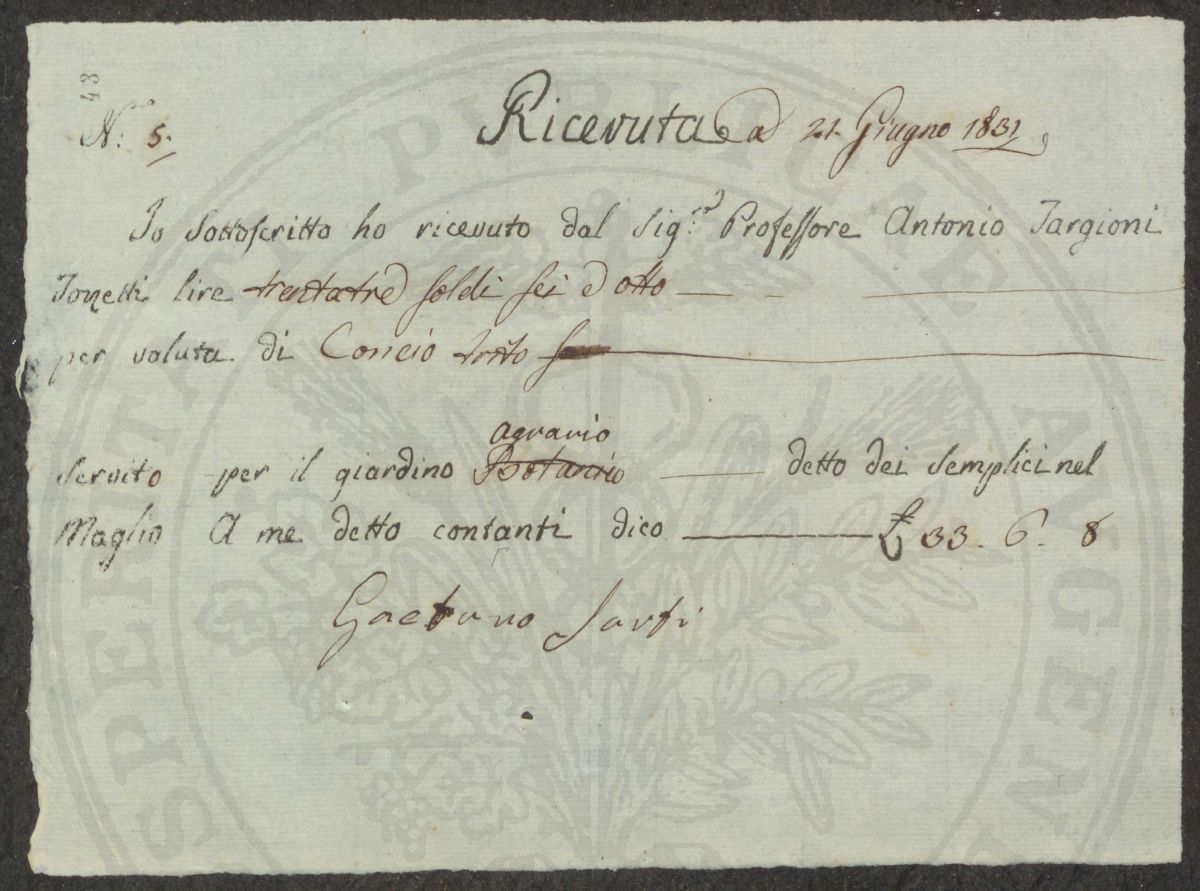 43
N: 5.
Ricevuta a 21. Giugno 1831
Io Sottoscritto ho ricevuto dal Sig.re Professore Antonio Targioni
Tozzetti lire trentatre soldi sei e otto
per valuta di Concio trito
agrario
servito per il giardino Botanico detto dei Semplici nel
Maglio A me detto contanti dico £ 33. 6. 8
Gaetano Sarti
PROSPERITATI PUBLICAE AUGENDAE